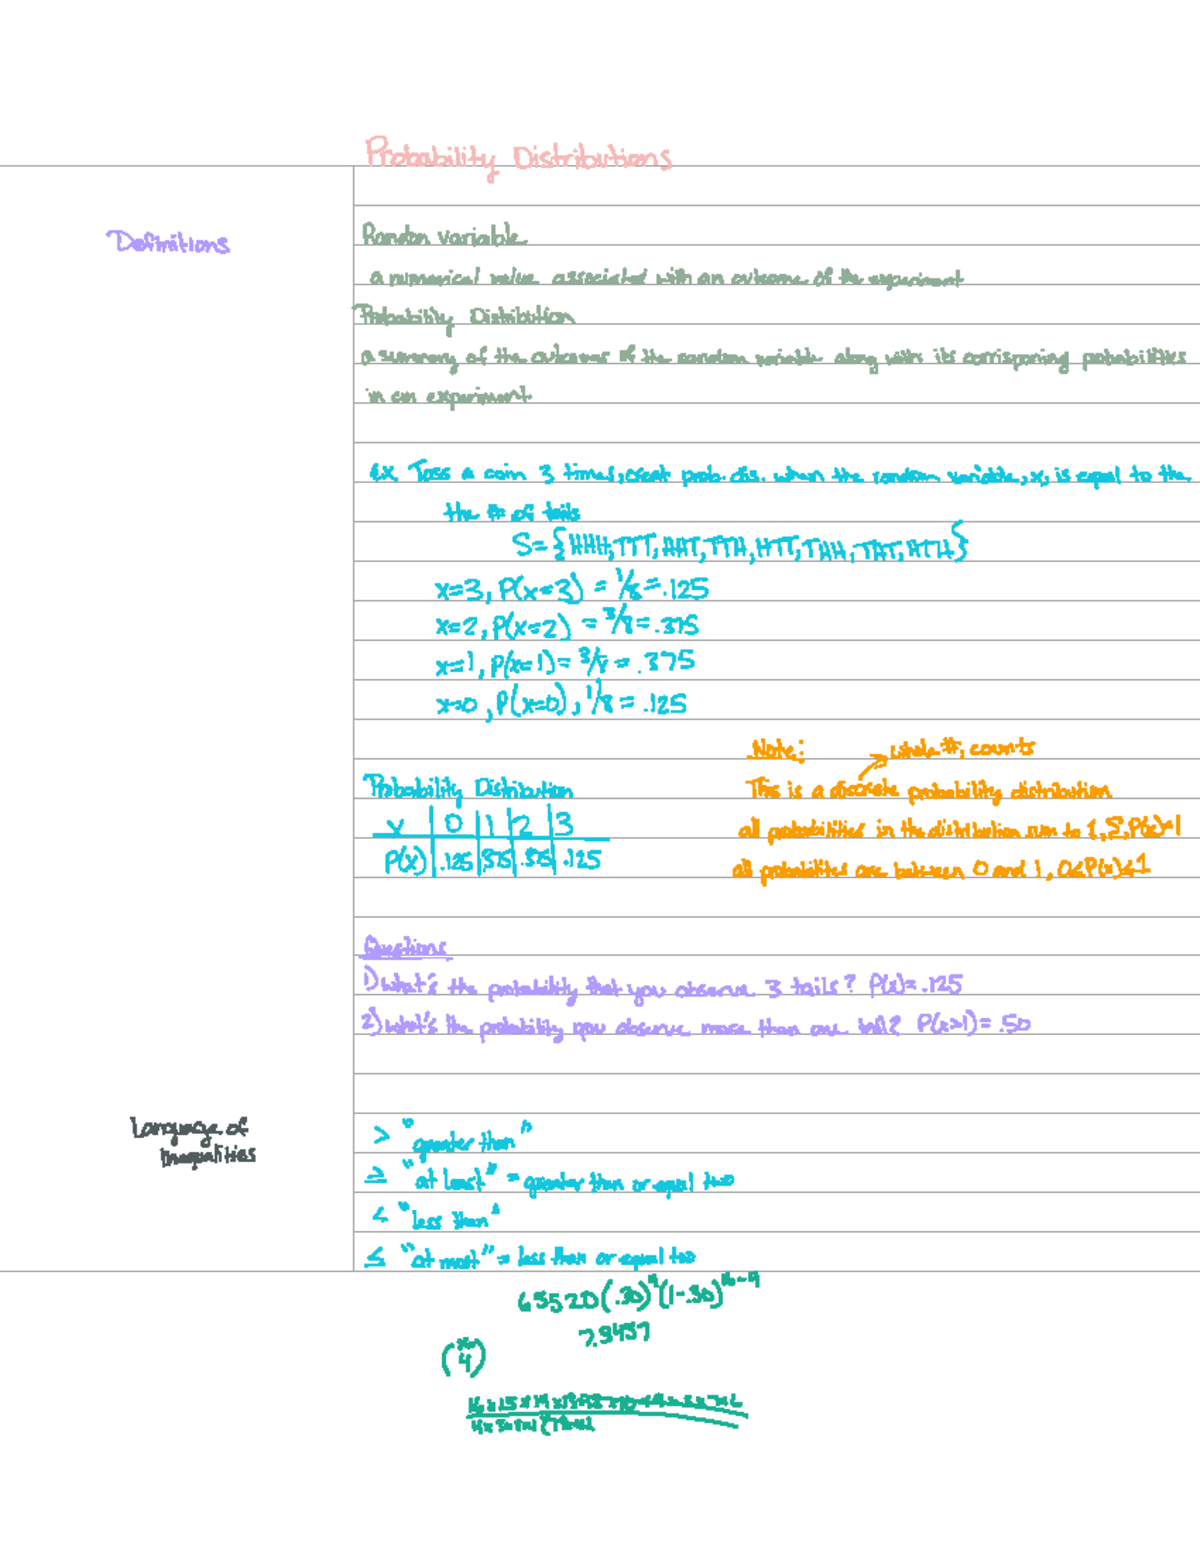 Probability Distributions
Definitions
Random variable
a numerical value associated with an outcome of the experiment
Probability Distribution
a summary of the outcomes of the random variable along with its corrisponing probabilities
in an experiment
Ex. Toss a coin 3 times, creat prob. dis. when the random variable, x, is equal to the
the # of tails
S={HHH,TTT,HHT,TTH,HTT,THH,THT,HTH}
x=3, P(x=3) = 1/8 = .125
x=2, P(x=2) = 3/8 = .375
x=1, P(x=1) = 3/8 = .375
x=0, P(x=0), 1/8 = .125
Note: whole #, counts
This is a discrete probability distribution
all probabilities in the distribution sum to 1, Σ,P(x)=1
all probabilities are between 0 and 1, 0≤P(x)≤1
Probability Distribution
x 0 1 2 3
P(x) .125 .375 .375 .125
Questions
1) what's the probability that you observe 3 tails? P(x)= .125
2) what's the probability you observe more than one tail? P(x>1)= .50
Language of
Inequalities
> "greater than"
≥ "at least" = greater than or equal two
< "less than"
≤ "at most" = less than or equal two
(.30) (1-.30)